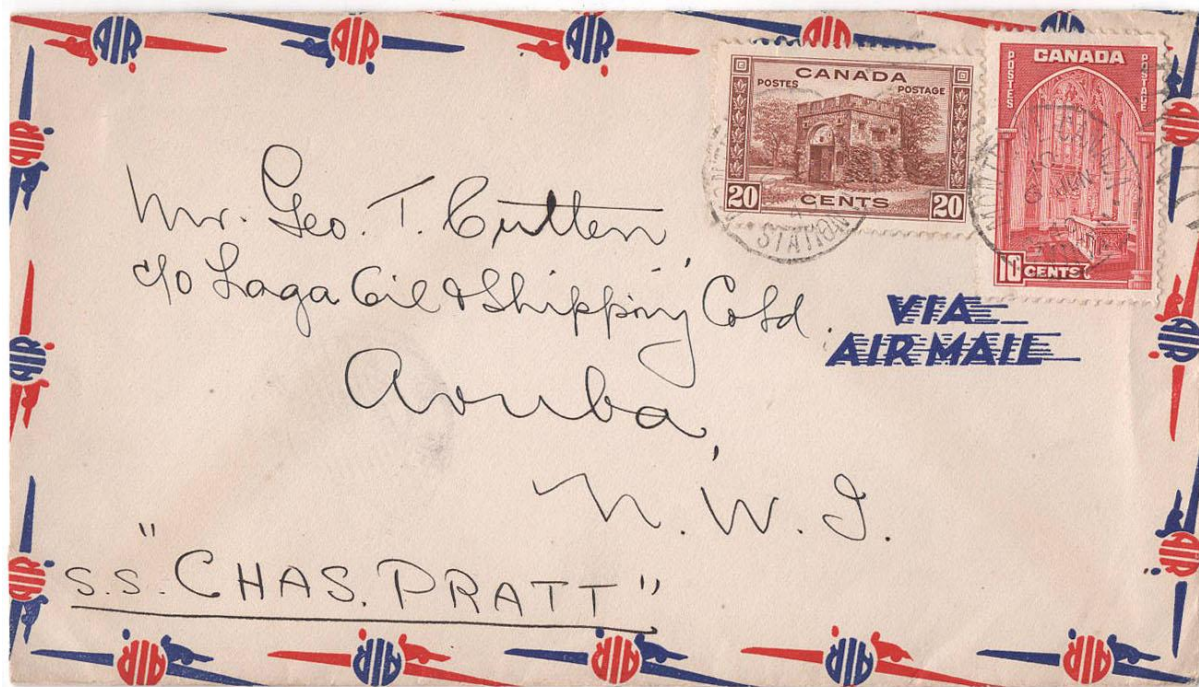 AIR AIR AIR AIR
CANADA
POSTES POSTAGE
20 CENTS 20
STATION
CANADA
POSTES POSTAGE
CENTS
CANADA
JUN
Mr. Geo. T. Cutten
c/o Laga Oil & Shipping Co Ltd.
VIA
AIR MAIL
Aruba,
N. W. I.
"
S.S. "CHAS. PRATT"
AIR AIR AIR AIR AIR